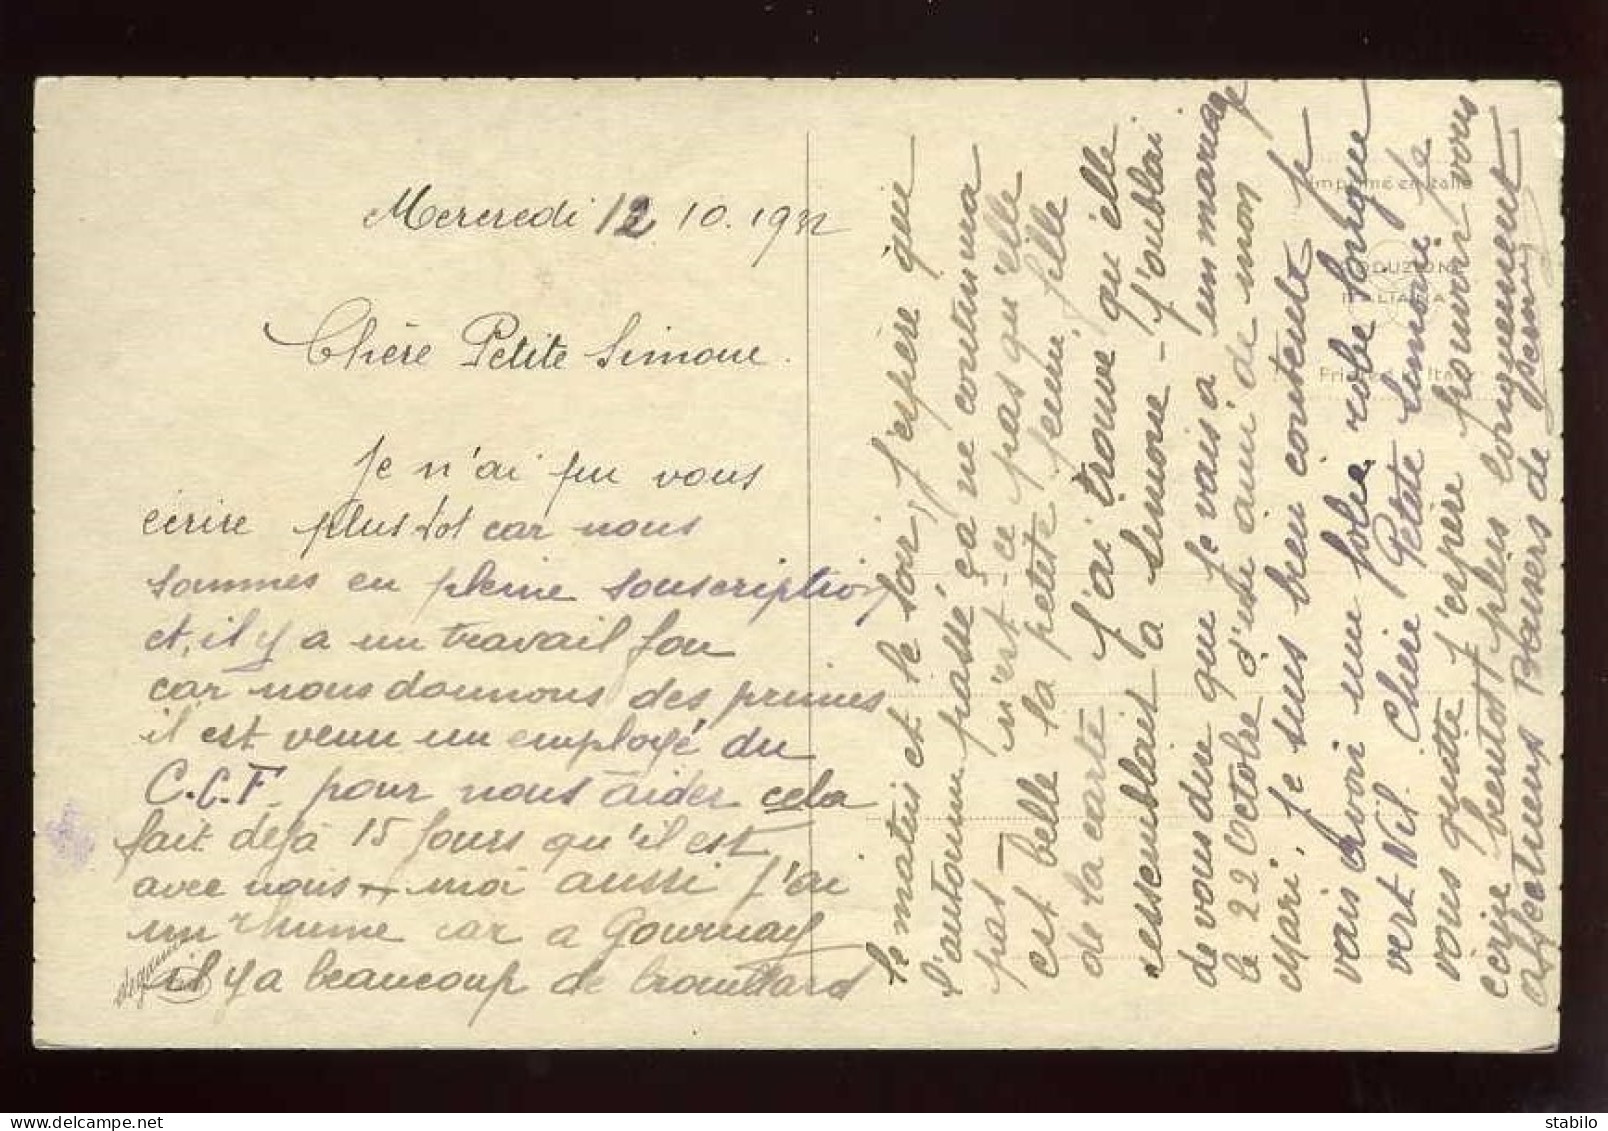 Mercredi 12.10.1932
Chère Petite Simone.
Je n'ai pu vous
écrire plus tôt car nous
sommes en pleine souscription
et, il y a un travail fou
car nous donnons des primes
il est venu un employé du
C.C.F. pour nous aider cela
fait déjà 15 jours qu'il est
avec nous - moi aussi j'ai
un rhume car a Gournay
il y a beaucoup de brouillard
degami
le matin et le soir, j'espère que
l'automne passé ça ne continura
pas - n'est-ce pas qu'elle
est belle la petite jeune fille
de la carte j'ai trouvé qu'elle
ressemblait a Simone - J'oubliai
de vous dire que je vais a un mariage
le 22 Octobre d'une amie de mon
Mari. Je suis bien contente je
vais avoir une jolie robe longue
vert Nil. Chère Petite Simone je
vous quitte j'espère pouvoir vous
écrire bientôt plus longuement
affectueux Baisers de Germaine
Imprimé en Italie
PRODUZIONE
ITALIANA
Printed in Italy